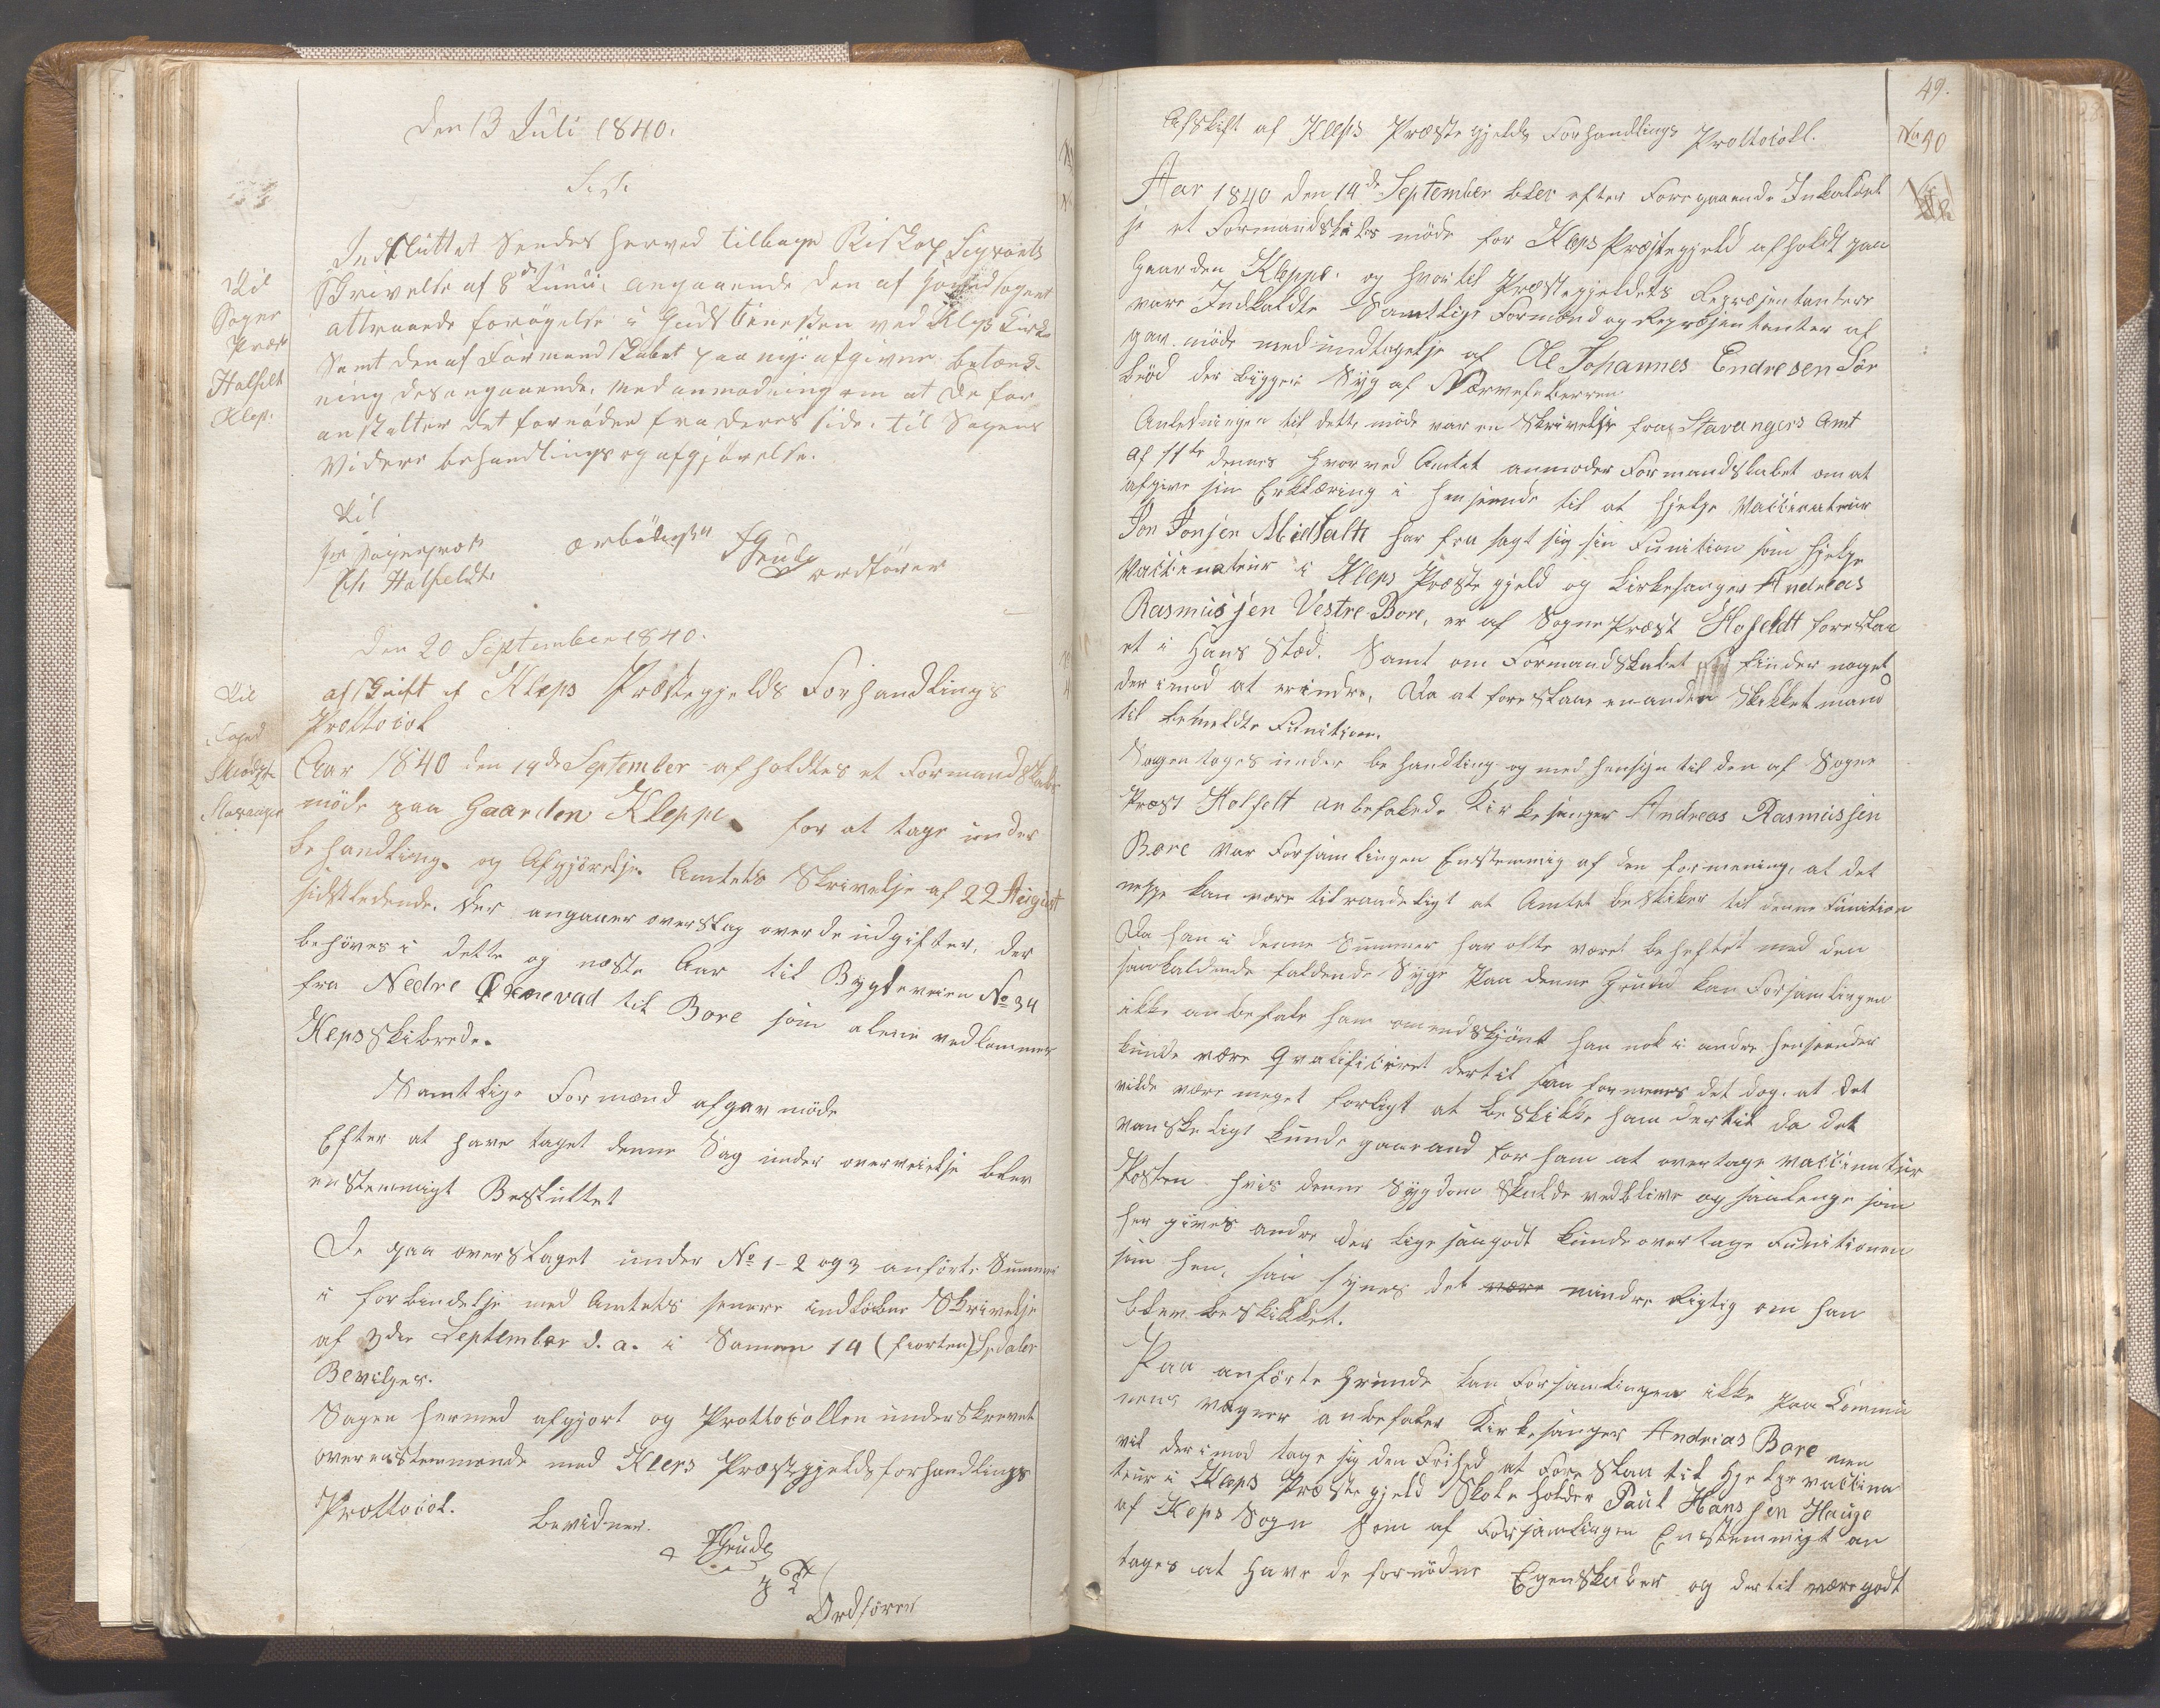 den 13 Juli 1840.
Indsluttet Sendes herved tilbage Biskop Sigvards
Skrivelse af 8de Junii, angaaende den af
attraaede forøgelse i Gudstienesten ved Kleps Kirke
Samt den af Formandskabet paa nye afgivne betænk-
ning desangaaende, med anmodning om at De for-
anstalter det fornødne fra deres side, til Sagens
Videre behandlings og afgjørelse.
Til
Sogne
Præst
Halfeldt
Klep.
Til
Hr Sognepræst
Halfeldt
ærbødigst
Grude
ordfører
Den 20 September 1840.
Til
Foged
Stavanger
afskrift af Kleps Præstegjelds Forhandlings
Prottocol
Aar 1840 den 14de September afholdtes et Formandskabs
møde paa Gaarden Kleppe for at tage under
behandling og Afgjørelse Amtets Skrivelse af 22 August
sidstledende, der angaaer overslag over de udgifter, der
behøves i dette og næste Aar til Bygdeveien No 34
fra Nedre Qvernevad til Bore som alene vedkommer
Kleps skibrede.
Samtlige Formænd afgav møde
Efter at have taget denne Sag under overveielse blev
enstemmigt Besluttet
De paa overslaget under No 1-2 og 3 anførte Summer
i forbindelse med Amtets senere indløbne Skrivelse
af 3die September d. a. i Samme 14 (fiorten) Spdaler
Bevilges.
Sagen hermed afgjort og Prottocollen underskrevet
overensstemmende med Kleps Præstegjelds forhandlings
Prottocol.
bevidner.
Grude
Ordfører
49.
No 50
Afskift af Kleps Præstegjelds Forhandlings Prottocoll.
Aar 1840 den 14de September blev efter Foregaaende Indkaldel
se et Formandskabs møde for Kleps Præstegjeld afholdt paa
Gaarden Kleppe, og hvortil Præstegjeldets Repræsentantere
vare Indkaldte Samtlige Formænd og Repræsentanter af
gav møde med undtagelse af Ole Johannes Endresen Sør
brød der ligger Syg af Nærvefeberen
Anledningen til dette møde var en Skrivelse fra Stavangers Amt
af 11te dennes hvorved Amtet anmoder Formandskabet om at
afgive sin Erklæring i henseende til at hjelpe Vaccinateur
Jon Jonsen Midtalte har fra sagt sig sin Function som hjelpe
Vaccinateur i Kleps Præstegjeld og Kirkesanger Andreas
Rasmussen Vestre Bore, er af Sogne Præst Hofeldt foreslaa
et i Hans Sted. Samt om Formandskabet finder noget
der imod at erindre, Da at foreslaae en anden Skikket mand
til bemeldte Function.
Sagen toges under behandling og med hensyn til den af Sogne
Præst Halfelt anbefalede Kirkesanger Andreas Rasmussen
Bore var Forsamlingen Enstemmig af den formening, at det
neppe kan være tilraadeligt at Amtet beskikker til denne Function
Da han i denne Sommer har ofte været beheftet med den
saakaldende faldende Syge Paa denne Grund kan Forsamlingen
ikke anbefale ham omendskjønt han nok i andre henseender
kunde være Qvalificiret dertil saa formenes det dog, at det
vilde være meget farligt at beskikke ham dertil da det
vanskeligt kunde gaae and for ham at overtage Vaccinatur
Posten hvis denne Sygdom Skulde vedblive og saalenge som
her gives andre der lige saa godt kunde overtage Functionen
som han, saa synes det være mindre Rigtig om han
blev beskikket.
Paa anførte Grunde kan Forsamlingen ikke paa Commu
nens vegner anbefaler Kirkesanger Andreas Bore men
vil derimod tage sig den Frihed at Foreslaa til Hjelpevaccina
teur i Kleps Præstegjeld Skoleholder Paul Hanssen Hauge
af Kleps Sogn Som af Forsamlingen Enstemmigt an
tages at have de fornødne Egenskaber og dertil være godt